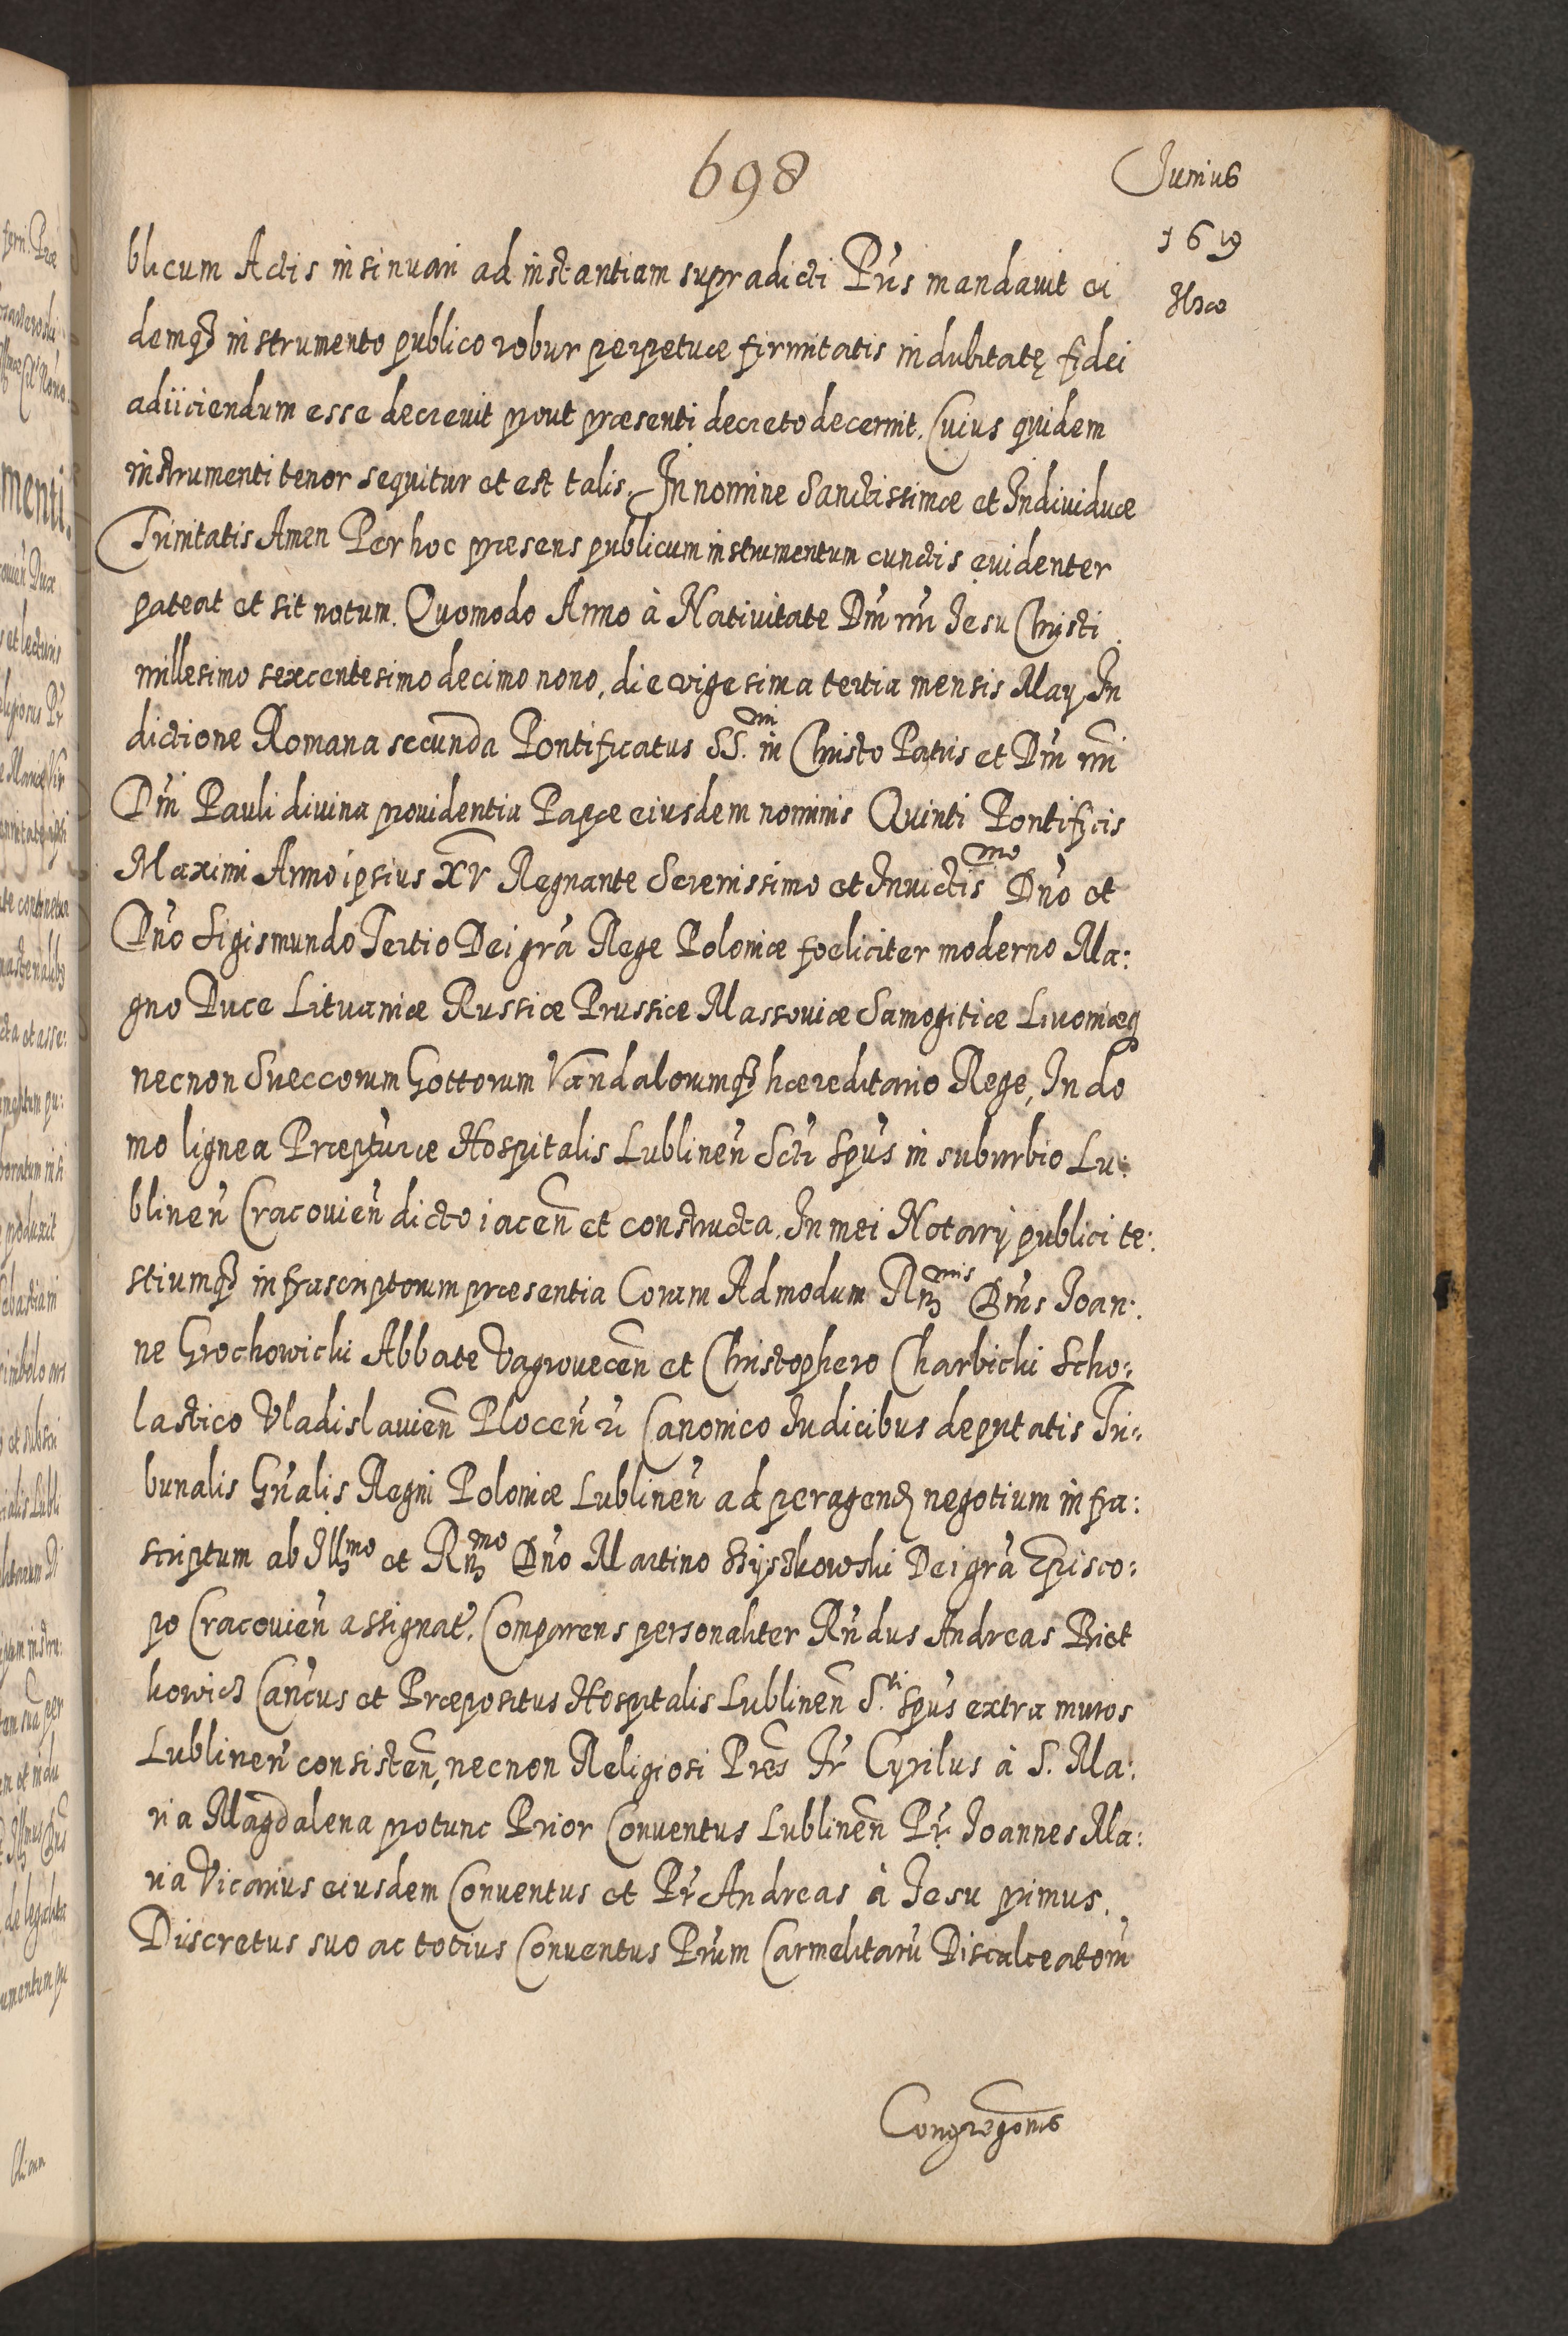 698
Junius
1619
blicum Actis insinuari ad instantiam supradicti Pr̃is mandavit ei
demq₃ instrumento publico robur perpetuæ firmitatis indubitatę fidei
adiiciendum esse decrevit prout præsenti decreto decernit. Cuius quidem
instrumenti tenor sequitur et est talis. In nomine Sanctissimæ et Individuæ
Trinitatis Amen Per hoc præsens publicum instrumentum cunctis evidenter
pateat et sit notum. Quomodo Anno à Nativitate Dñi nr̃i Jesu Christi
millesimo sexcentesimo decimo nono, die vigesima tertia mensis May In
dictione Romana secunda Pontificatus SS.mi in Christo Patris et Dñi nr̃i
Dñi Pauli divina providentia Papæ eiusdem nominis Quinti Pontificis
Maximi Anno ipsius XV Regnante Serenissimo et Invictismo Dño et
Dño Sigismundo Tertio Dei grã Rege Poloniæ foeliciter moderno Ma:
gno Duce Lituaniæ Russiæ Prussiæ Massoviæ Samogitiæ Livoniæq
necnon Sueccorum Gottorum Vandalorumq₃ hæreditario Rege, In do
mo lignea Præpturæ Hospitalis Lublineñ Scti Spũs in suburbio Lu:
blineñ Cracovieñ dicto iaceñ et constructa. In mei Notarij publici te:
stiumq₃ infrascriptorum præsentia Coram Admodum Rn₃mis Dñis Joan:
ne Grochowicki Abbate Vagroveceñ et Christophero Charbicki Scho:
lastico Vladislavieñ Ploceñ r̃ Canonico Judicibus deputatis Tri:
bunalis Gñalis Regni Poloniæ Lublineñ ad peragend negotium infra:
scriptum ab Ill₃mo et Rn₃mo Dño Martino Szyszkowski Dei grã Episco:
po Cracovieñ assignat. Comparens personaliter Rñdus Andreas Piet
kowicz Cañcus et Præpositus Hospitalis Lublineñ S.ti Spũs extra muros
Lublineñ consisteñ, necnon Religiosi Pres Fr Cyrilus à S. Ma:
ria Magdalena protunc Prior Conventus Lublineñ Pr. Joannes Ma:
ria Vicarius eiusdem Conventus et Pr Andreas à Jesu primus.
Discretus suo ac totius Conventus Pr̃um Carmelitarũ Discalceatorũ
Congregonis